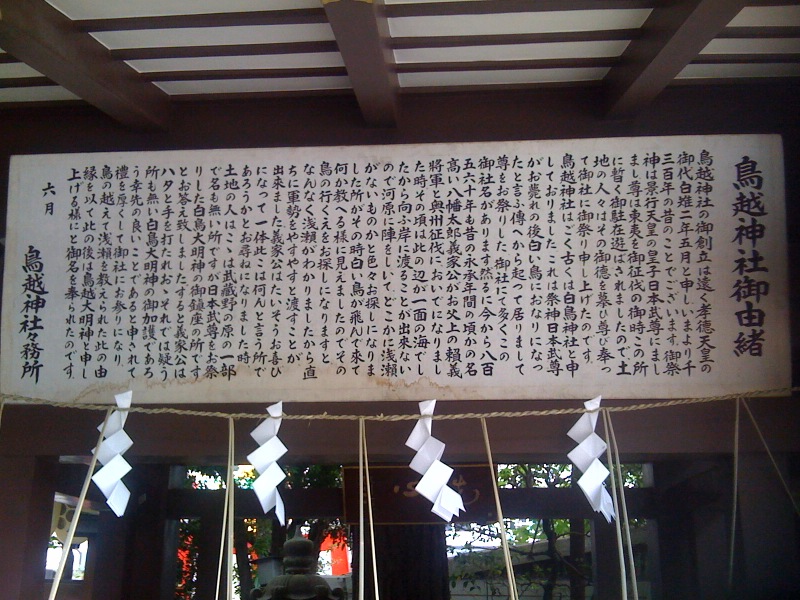 鳥越神社御由緒
鳥越神社の御創立は遠く孝徳天皇の
御代白雉二年五月と申しいまより千
三百年の昔のことでございます。御祭
神は景行天皇の皇子日本武尊にまし
まし尊は東夷を御征伐の御時この所
に暫く御駐在遊ばされましたので、土
地の人々はその御徳を慕ひ尊び奉っ
て御社に御祭り申し上げたのです。
鳥越神社はごく古くは白鳥神社と申
しておりましたこれは祭神日本武尊
がお薨れの後白い鳥におなりになつ
たと言ふ傳へから起って居りまして
尊をお祭りした御社にて多くこの
御社名があります然るに今から八百
五六十年も昔の永承年間の頃かの名
高い八幡太郎義家公がお父上の頼義
将軍と奥州征伐においでになりまし
た時その頃は此の辺が一面の海でし
たから向ふ岸に渡ることが出来ない
ので河原に陣をしいて、どこかに浅瀬
がないものかと色々お探しになりま
した所がその時白い鳥が飛んで来て
何か教へる様に見えましたのでその
鳥の行くえをお探しになりますと
なんなく浅瀬がわかりましたから直
ちに軍勢をやすやすと渡すことが
出来ました義家公はたいそうお喜び
になって一体此こは何んと言う所で
あろうかとお尋ねになりました時
土地の人はこゝは武蔵野の原の一部
で名も無い所ですが日本武尊をお祭
りした白鳥大明神の御鎮座の所です
とお答え致しましたすると義家公は
ハタと手を打たれおゝそれでは疑う
所も無い白鳥大明神の御加護であろ
う幸先の良いことであると申されて
禮を厚くして御社にお参りになり、
鳥の越えて浅瀬を教えられた此の由
縁を以て此の後は鳥越大明神と申し
上げる様にと御名を奉られたのです。
六月
鳥越神社々務所